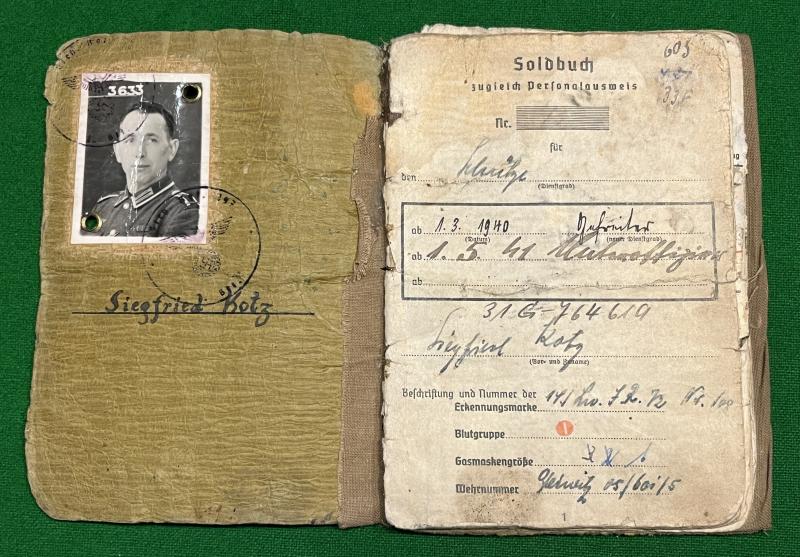 3633
Siegfried Kotz
605
Soldbuch
zugleich Personalausweis
Nr.
für
den Schütze
(Dienstgrad)
ab 1. 3. 1940 Gefreiter
(Datum) (neuer Dienstgrad)
ab 1. 3. 41 Unteroffizier
ab
31-G-764619
Siegfried Kotz
(Vor- und Zuname)
Beschriftung und Nummer der
Erkennungsmarke
Blutgruppe
Gasmaskengröße
Wehrnummer Gleiwitz 05/601/5
1